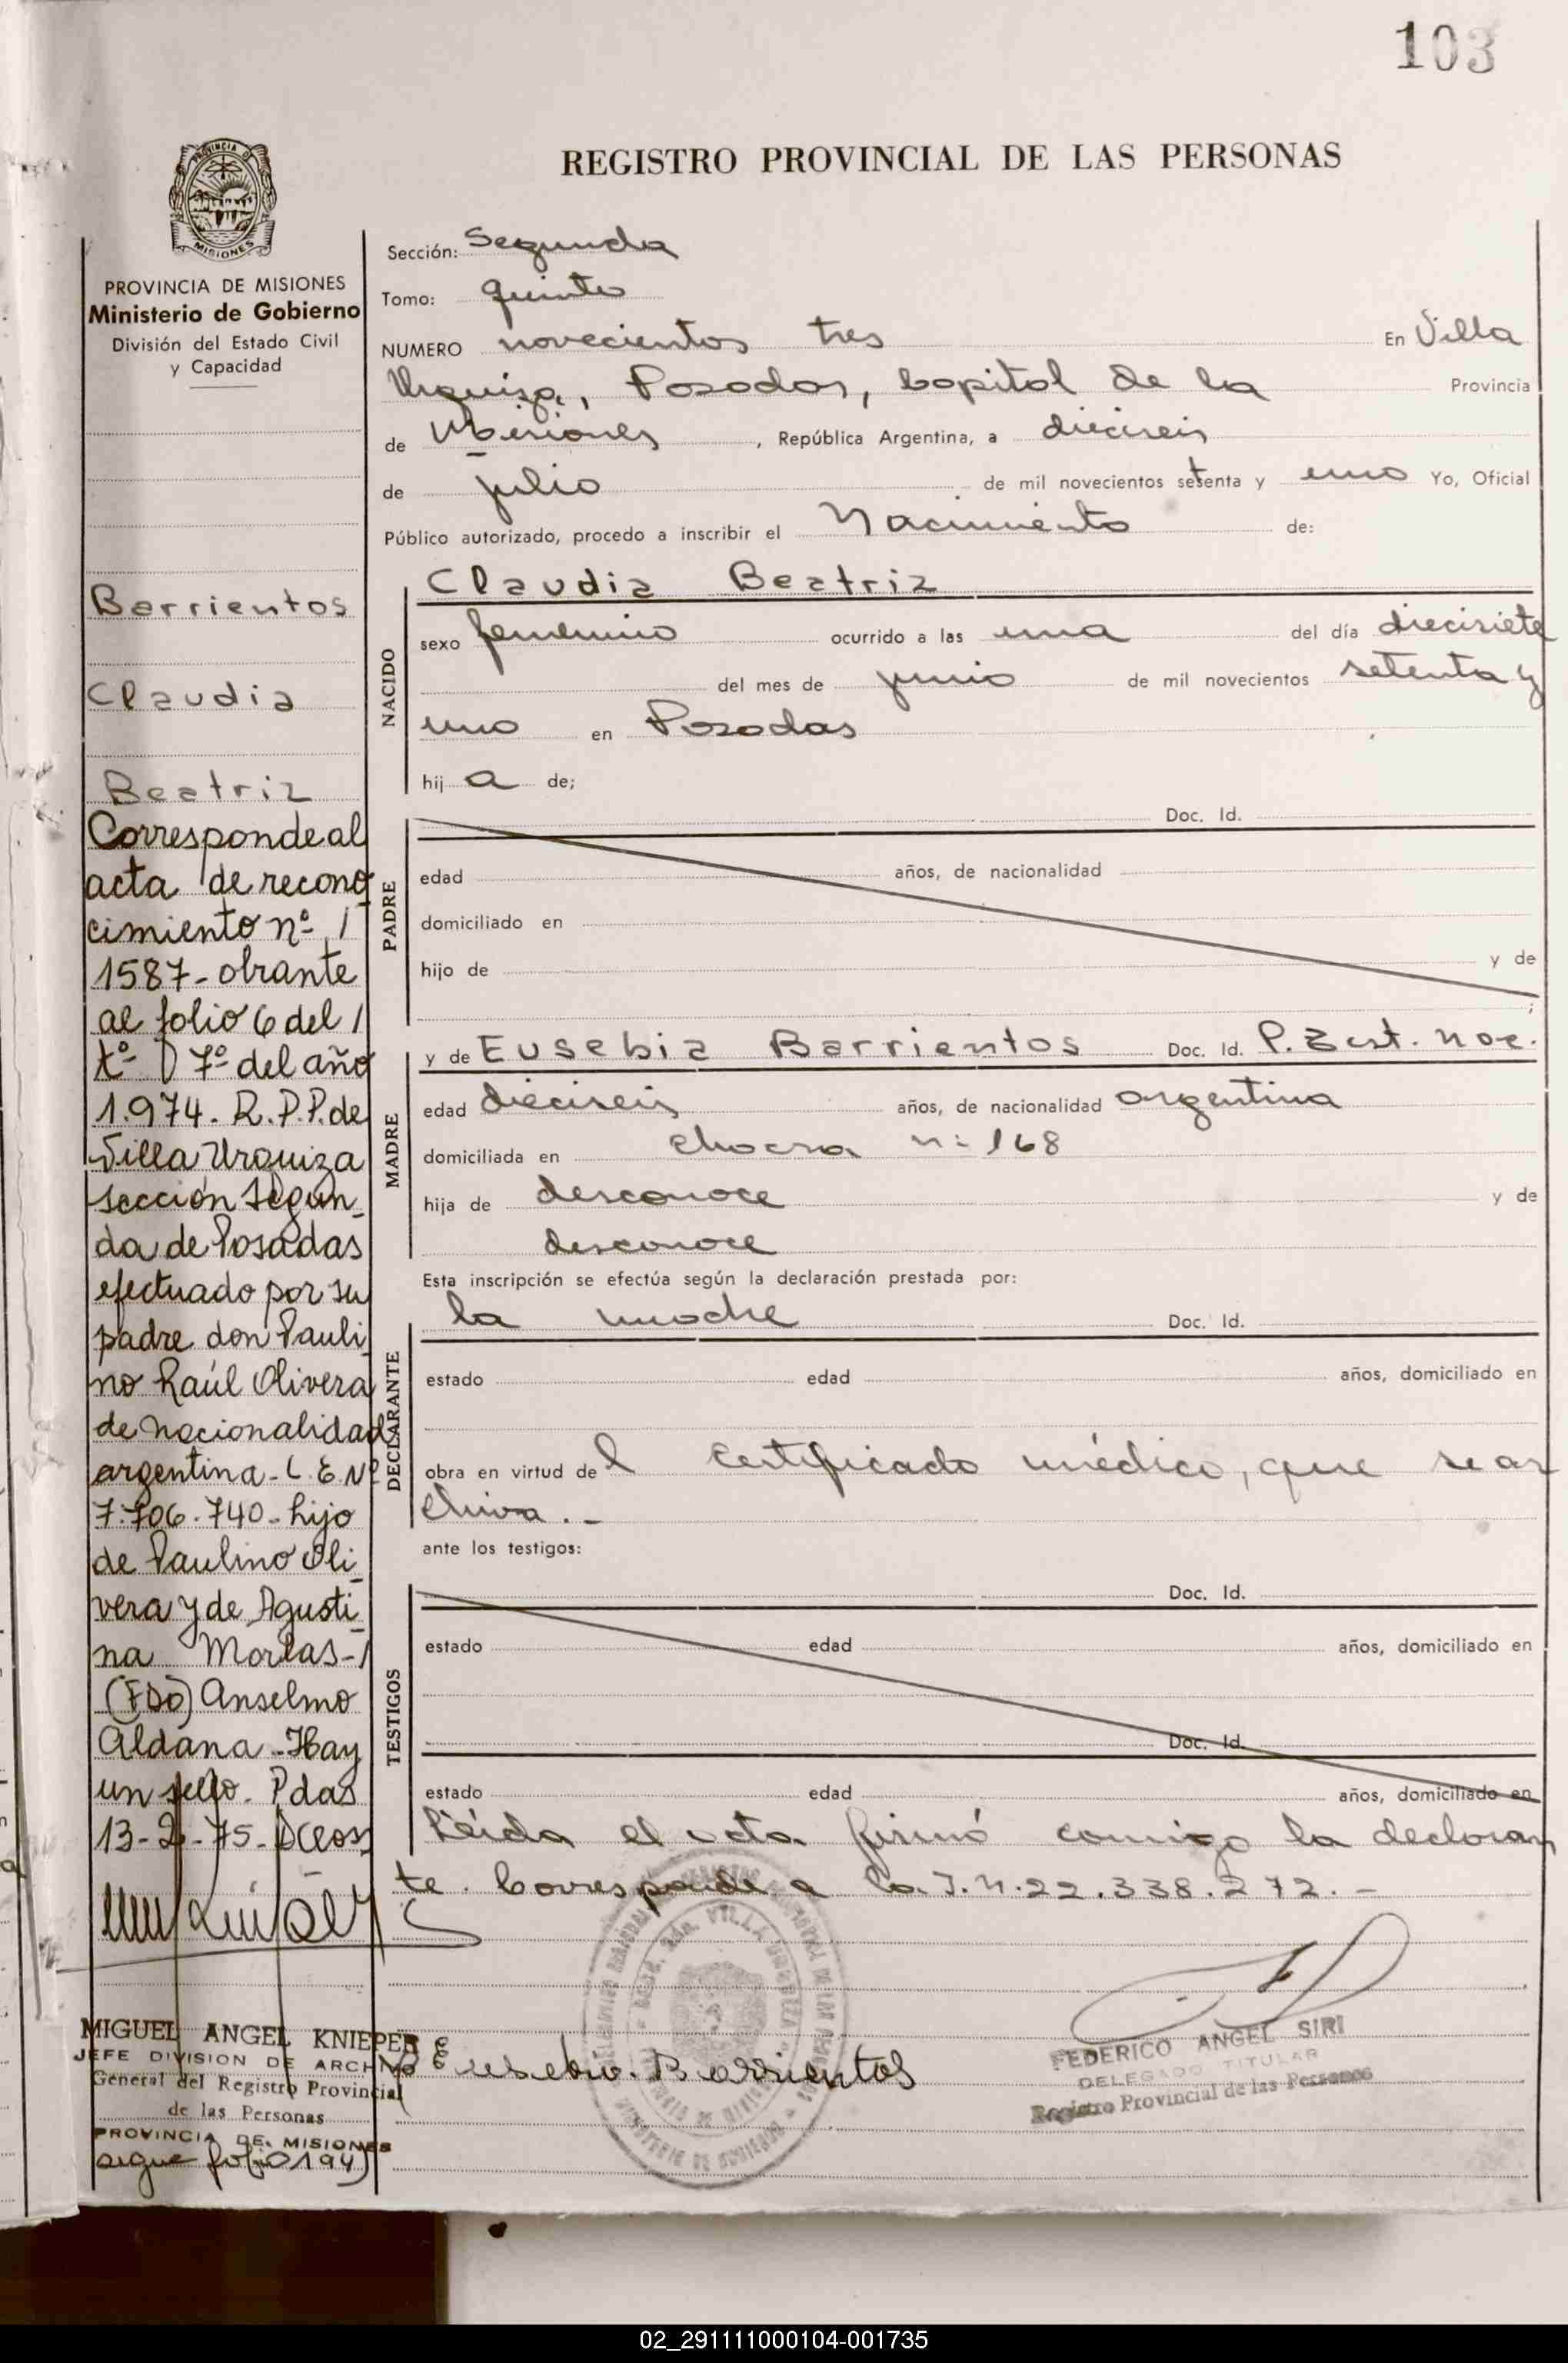 103
REGISTRO PROVINCIAL DE LAS PERSONAS
PROVINCIA DE MISIONES
Ministerio de Gobierno
División del Estado Civil
y Capacidad
Barrientos
Claudia
Beatriz
Corresponde al
acta de recono
cimiento nº /
1587- obrante
al folio 6 del /
tº 7º del año
1.974. R.P.P. de
Villa Urquiza
sección Segun
da de Posadas
efectuado por su
padre don Pauli
no Raúl Olivera
de nacionalidad
argentina - L.E. Nº
7.706.740- hijo
de Paulino Oli
vera y de Agusti
na Morlas-/
(FDO) Anselmo
Aldana - Hay
un sello. Pdas
13-2-75-
MIGUEL ANGEL KNIEPER
JEFE DIVISION DE ARCHIVO
General del Registro Provincial
de las Personas
PROVINCIA DE MISIONES
sigue folio 194
Sección: Segunda
Tomo: quinto
NUMERO novecientos tres En Villa
Urquiza, Posadas, Capital de la Provincia
de Misiones, República Argentina, a dieciseis
de julio de mil novecientos setenta y uno Yo, Oficial
Público autorizado, procedo a inscribir el Nacimiento de:
NACIDO
Claudia Beatriz
sexo femenino ocurrido a las una del día diecisiete
del mes de junio de mil novecientos setenta y
uno en Posadas
hij a de;
PADRE
Doc. Id.
edad años, de nacionalidad
domiciliado en
hijo de y de
;
MADRE
y de Eusebia Barrientos Doc. Id. P. Cert. Nac.
edad dieciseis años, de nacionalidad argentina
domiciliada en chacra nº 168
hija de desconoce y de
desconoce
Esta inscripción se efectúa según la declaración prestada por:
DECLARANTE
la madre Doc. Id.
estado edad años, domiciliado en
obra en virtud del certificado médico, que se ar
chiva.-
ante los testigos:
TESTIGOS
Doc. Id.
estado edad años, domiciliado en
Doc. Id.
estado edad años, domiciliado en
Leída el acta firmó conmigo la declaran
te. Corresponde a la I.N. 22.338.272.-
Eusebia Barrientos
FEDERICO ANGEL SIRI
DELEGADO TITULAR
Registro Provincial de las Personas
02_291111000104-001735